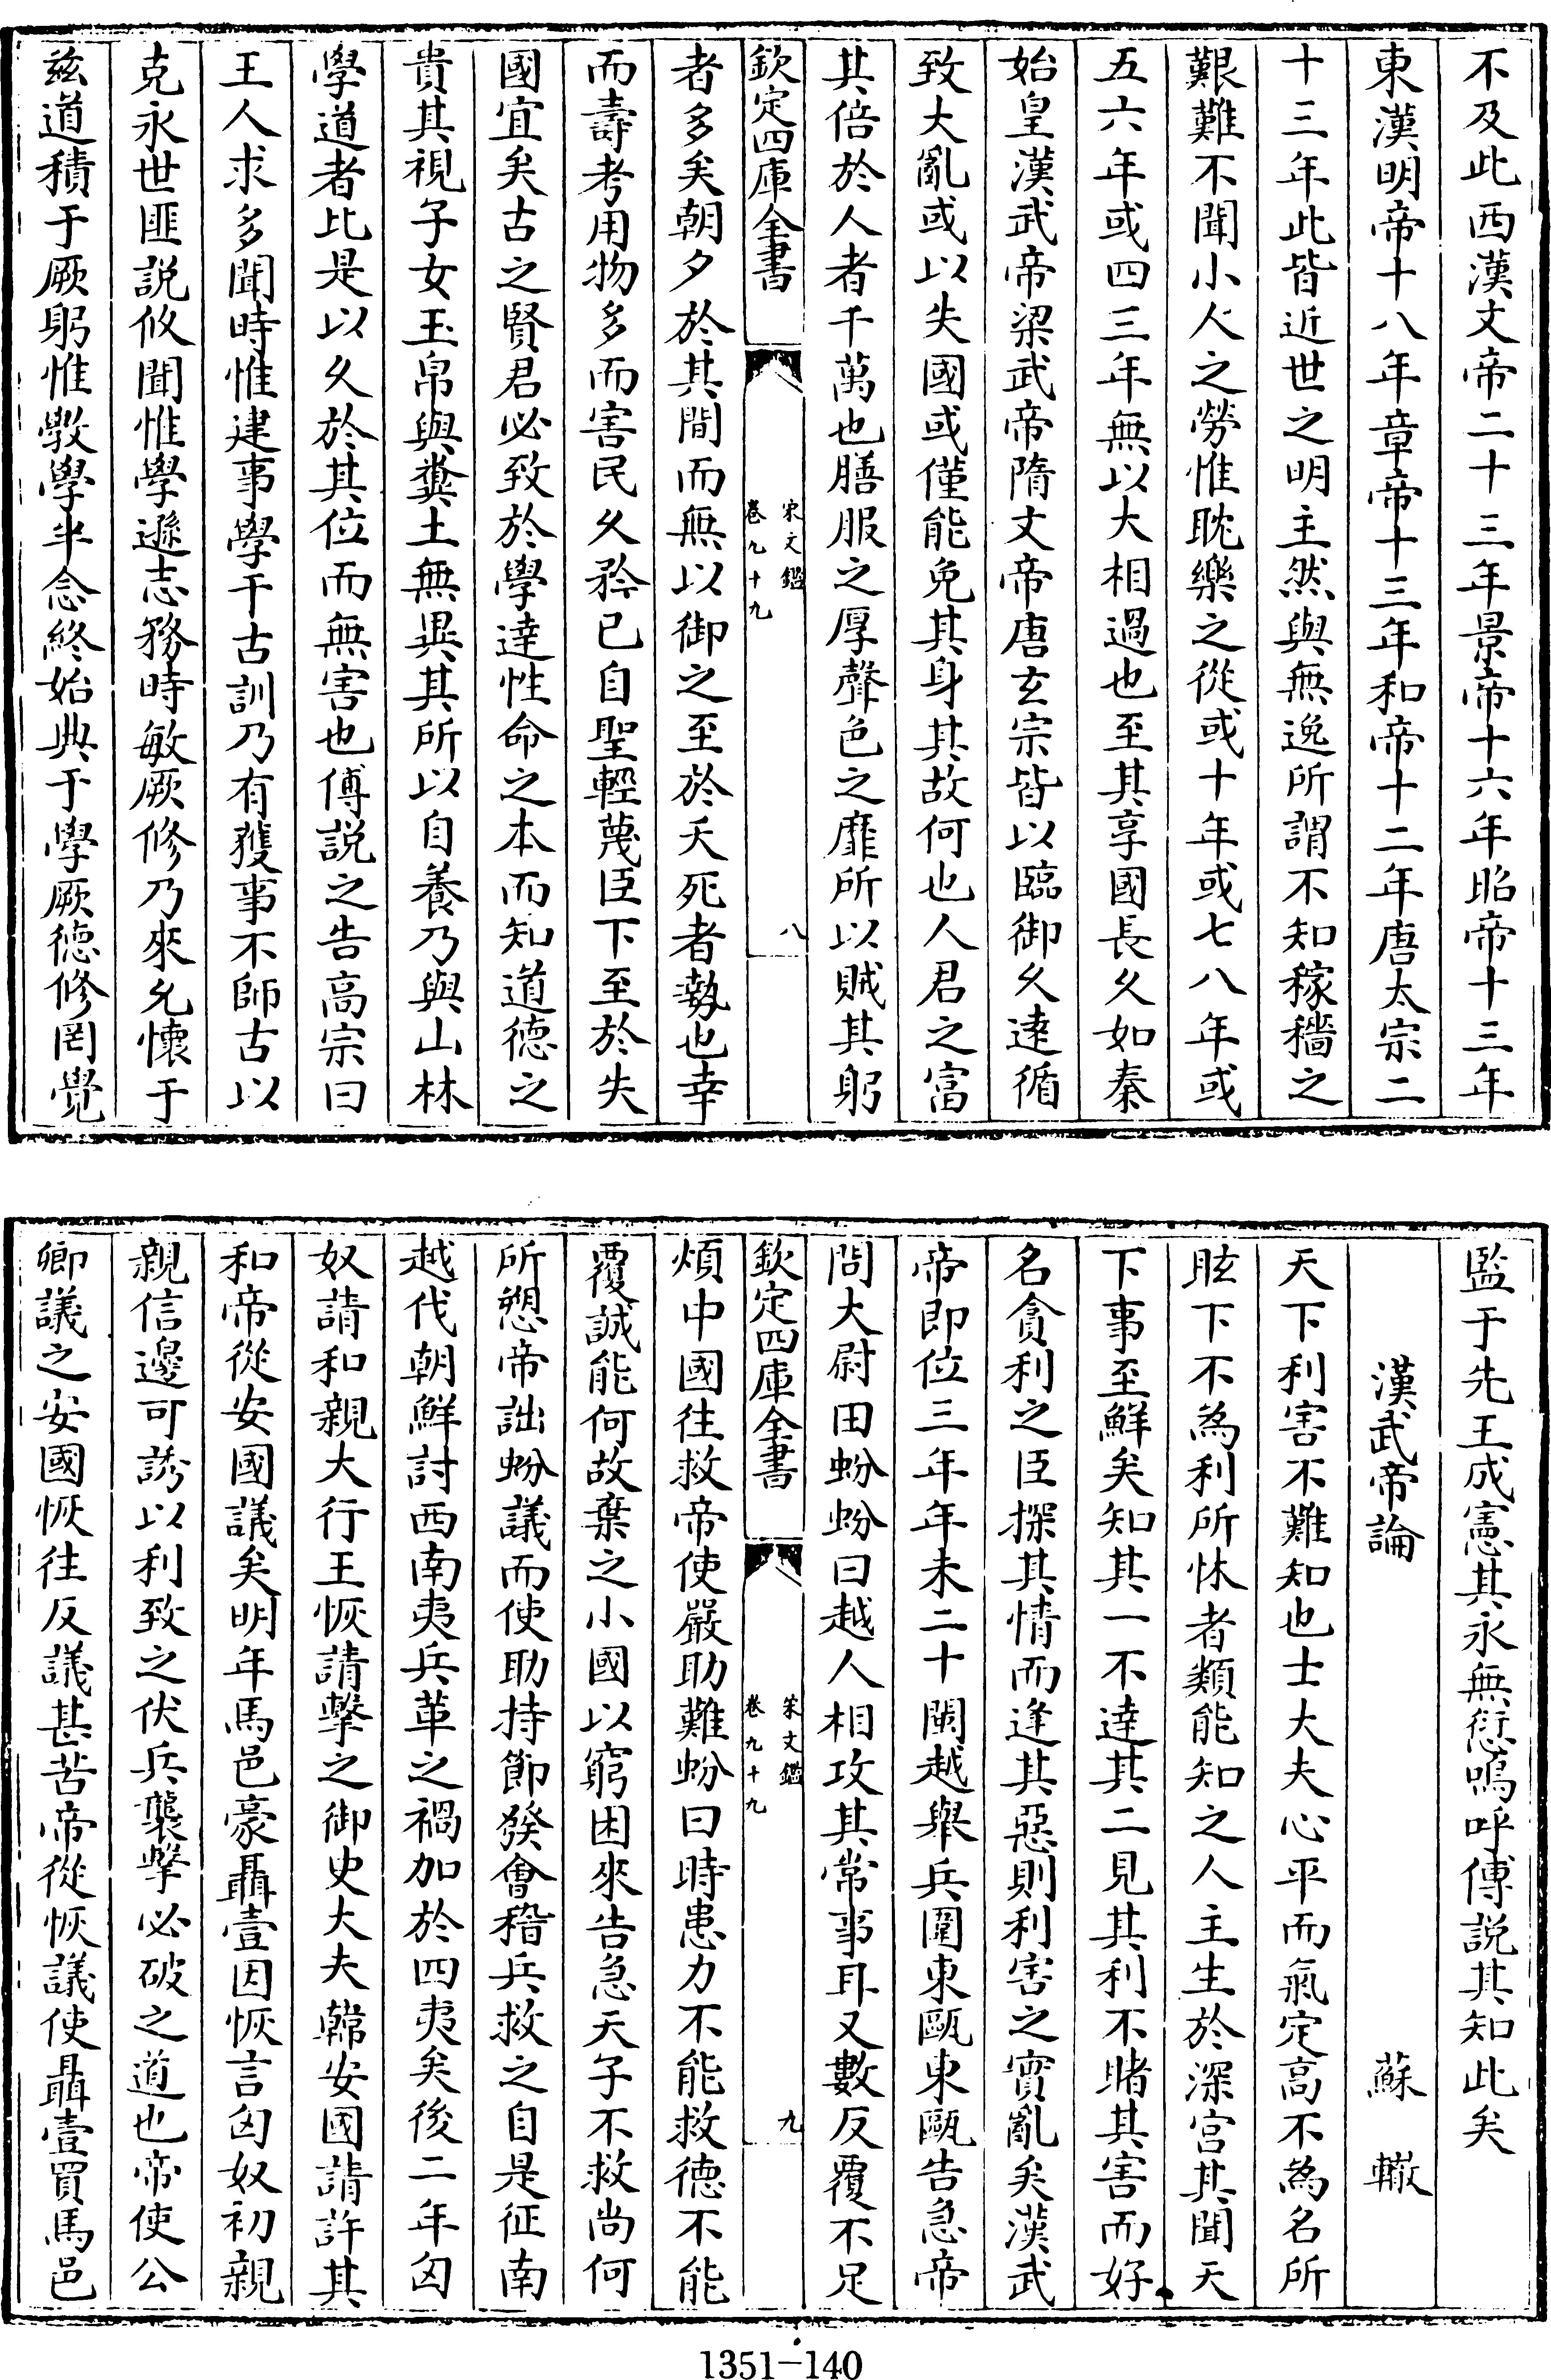 不及此西漢文帝二十三年景帝十六年昭帝十三年
東漢明帝十八年章帝十三年和帝十二年唐太宗二
十三年此皆近世之明主然與無逸所謂不知稼穡之
艱難不聞小人之勞惟耽樂之從或十年或七八年或
五六年或四三年無以大相過也至其享國長久如秦
始皇漢武帝梁武帝隋文帝唐玄宗皆以臨御久逺循
致大亂或以失國或僅能免其身其故何也人君之富
其倍於人者千萬也膳服之厚聲色之靡所以賊其躬
欽定四庫全書
宋文鑑
卷九十九
八
者多矣朝夕於其間而無以御之至於夭死者勢也幸
而壽考用物多而害民久矜已自聖輕蔑臣下至於失
國宜矣古之賢君必致於學達性命之本而知道德之
貴其視子女玉帛與糞土無異其所以自養乃與山林
學道者比是以久於其位而無害也傅説之告高宗曰
王人求多聞時惟建事學于古訓乃有獲事不師古以
克永世匪説攸聞惟學遜志務時敏厥修乃來允懷于
兹道積于厥躬惟斆學半念終始典于學厥德修罔覺
監于先王成憲其永無愆嗚呼傅説其知此矣
漢武帝論 蘇轍
天下利害不難知也士大夫心平而氣定高不為名所
眩下不為利所怵者類能知之人主生於深宫其聞天
下事至鮮矣知其一不達其二見其利不睹其害而好
名貪利之臣探其情而逢其惡則利害之實亂矣漢武
帝即位三年年未二十閩越舉兵圍東甌東甌告急帝
問大尉田蚡蚡曰越人相攻其常事耳又數反覆不足
欽定四庫全書
宋文鑑
卷九十九
九
煩中國往救帝使嚴助難蚡曰時患力不能救德不能
覆誠能何故棄之小國以窮困來告急天子不救尚何
所愬帝詘蚡議而使助持節發會稽兵救之自是征南
越伐朝鮮討西南夷兵革之禍加於四夷矣後二年匈
奴請和親大行王恢請擊之御史大夫韓安國請許其
和帝從安國議矣明年馬邑豪聶壹因恢言匈奴初親
親信邊可誘以利致之伏兵襲擊必破之道也帝使公
卿議之安國恢往反議甚苦帝從恢議使聶壹買馬邑
1351-140